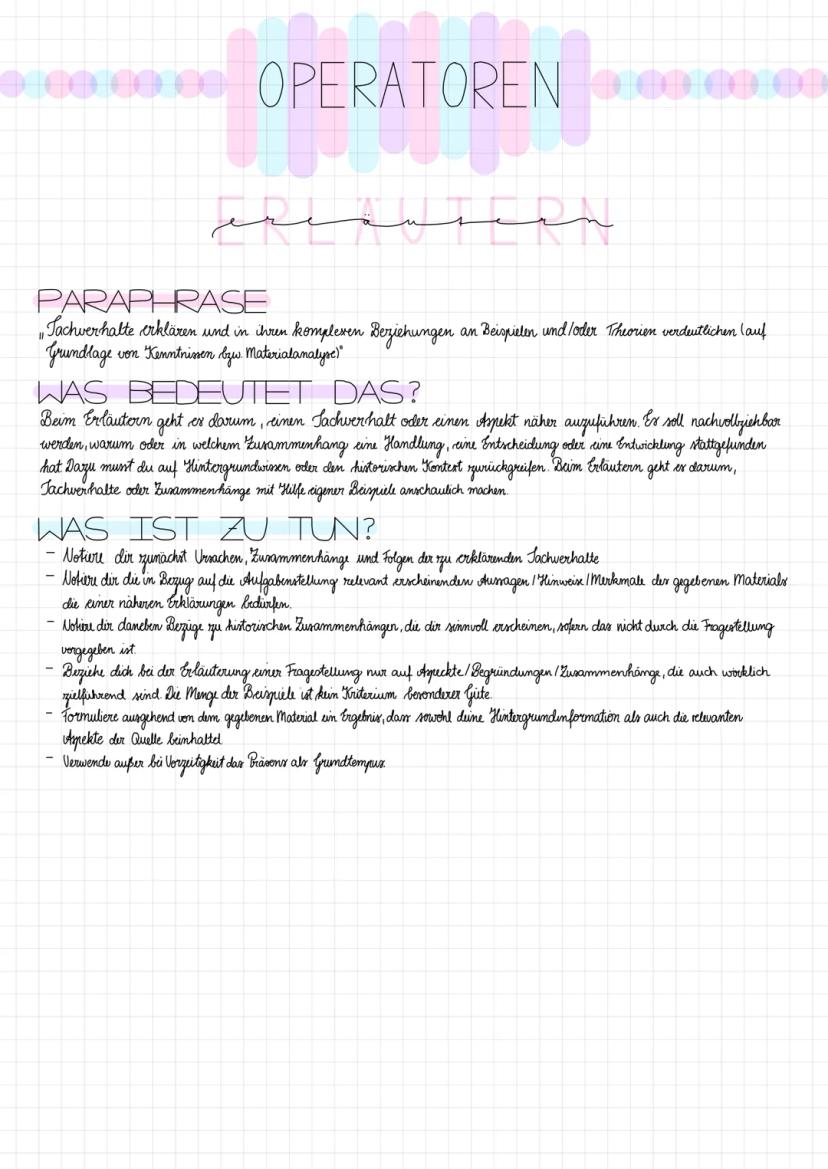 OPERATOREN
ERLÄUTERN
erläutern
PARAPHRASE
„Sachverhalte erklären und in ihren komplexen Beziehungen an Beispielen und/oder Theorien verdeutlichen (auf
Grundlage von Kenntnissen bzw. Materialanalyse)"
WAS BEDEUTET DAS?
Beim Erläutern geht es darum, einen Sachverhalt oder einen Aspekt näher auzuführen. Es soll nachvollziehbar
werden, warum oder in welchem Zusammenhang eine Handlung, eine Entscheidung oder eine Entwicklung stattgefunden
hat Dazu musst du auf Hintergrundwissen oder den historischen Kontext zurückgreifen. Beim Erläutern geht es darum,
Sachverhalte oder Zusammenhänge mit Hilfe eigener Beispiele anschaulich machen.
WAS IST ZU TUN?
- Notiere dir zunächst Ursachen, Zusammenhänge und Folgen der zu erklärenden Sachverhalte
- Notiere dir die in Bezug auf die Aufgabenstellung relevant erscheinenden Aussagen/Hinweise/Merkmale des gegebenen Materials
die einer näheren Erklärungen bedürfen.
- Notiere dir daneben Bezüge zu historischen Zusammenhängen, die dir sinnvoll erscheinen, sofern das nicht durch die Fragestellung
vorgegeben ist.
- Beziehe dich bei der Erläuterung einer Fragestellung nur auf Aspeckte/Begründungen/Zusammenhänge, die auch wirklich
zielführend sind. Die Menge der Beispiele ist kein Kriterium besonderer Güte.
- Formuliere ausgehend von dem gegebenen Material ein Ergebnis, dass sowohl deine Hintergrundinformation als auch die relevanten
Aspekte der Quelle beinhaltet
- Verwende außer bei Vorzeitigkeit das Präsens als Grundtempus.